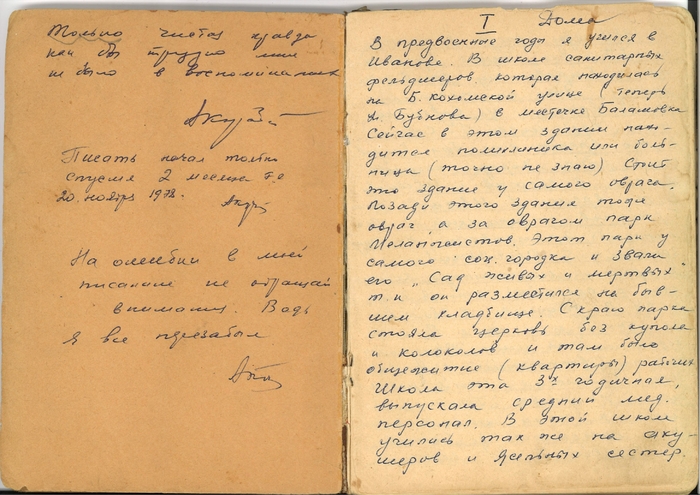 Только чистая правда
как бы трудно мне
не было в воспоминаниях
Писать начал только
спустя 2 месяца т.е
20. ноябрь 1978.
На ошибки в моей
писанине не обращай
внимания. Ведь
я все перезабыл
I Дома
В предвоенные годы я учился в
Иванове. В школе санитарных
фельдшеров, которая находилась
на Б. Кохомской улице (теперь
Бубнова) в местечке Баламовка
Сейчас в этом здании нахо-
дится поликлиника или боль-
ница (точно не знаю) Стоит
это здание у самого оврага.
Позади этого здания тоже
овраг, а за оврагом парк
Меланжистов. Этот парк у
самого соц. городка и звали
его "Сад живых и мертвых"
т.к он разместился на быв-
шем кладбище. С краю парка
стояла церковь без купола
и колоколов и там было
общежитие (квартиры) рабочих
Школа эта 3х годичная,
выпускала средний мед.
персонал. В этой школе
учились так же на аку-
шеров и ясельных сестер.